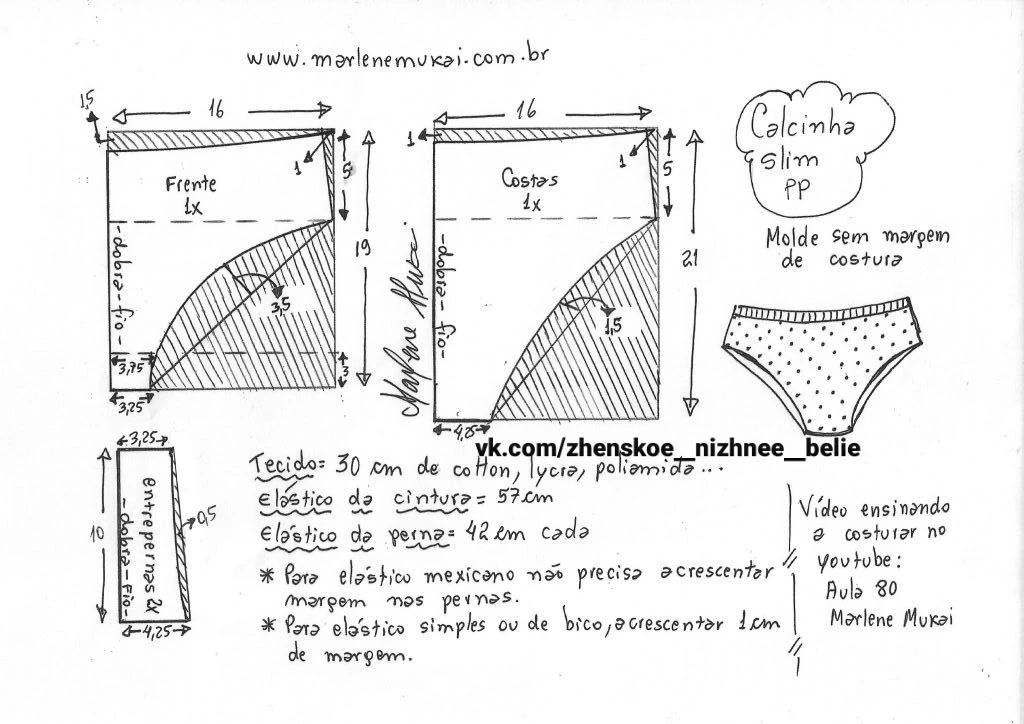 www.marlenemukai.com.br
1,5
16
1
5
19
Frente
1x
-dobra-fio-
3,5
3,75
3
3,25
16
1
1
5
21
Costas
1x
-dobra-fio-
1,5
4,25
Marlene Mukai
Calcinha
slim
PP
Molde sem margem
de costura
vk.com/zhenskoe_nizhnee_belie
3,25
10
entrepernas 2x
-dobra-fio-
0,5
4,25
Tecido= 30 cm de cotton, lycra, poliamida...
Elástico da cintura= 57cm
Elástico da perna= 42cm cada
* Para elástico mexicano não precisa acrescentar
margem nas pernas.
* Para elástico simples ou de bico, acrescentar 1cm
de margem.
Vídeo ensinando
a costurar no
youtube:
Aula 80
Marlene Mukai